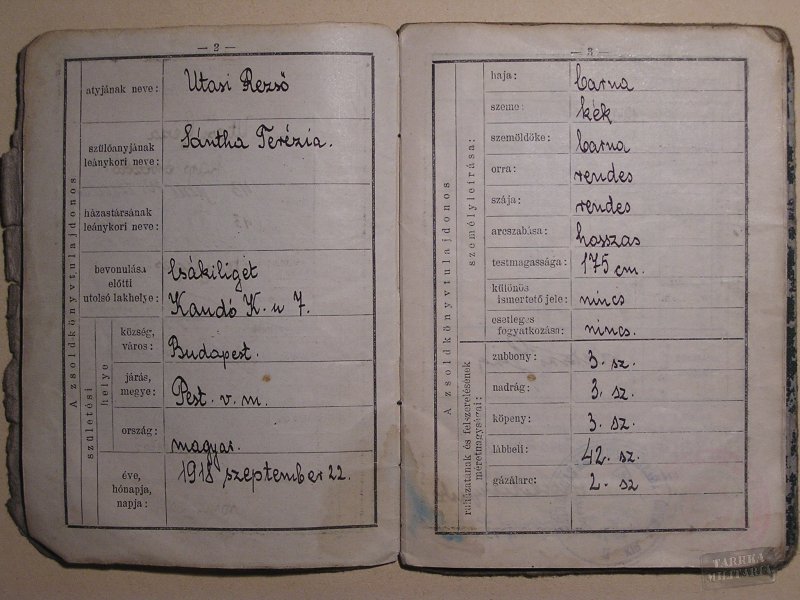 — 2 —
A zsoldkönyvtulajdonos
atyjának neve:
Utasi Rezső
szülőanyjának
leánykori neve:
Sántha Terézia.
házastársának
leánykori neve:
bevonulása
előtti
utolsó lakhelye:
Csákiliget
Kandó K. u 7.
születési
helye
község,
város:
Budapest.
járás,
megye:
Pest. v. m.
ország:
magyar.
éve,
hónapja,
napja:
1918 szeptember 22.
— 3 —
A zsoldkönyvtulajdonos
személyleírása:
haja:
barna
szeme:
kék
szemöldöke:
barna
orra:
rendes
szája:
rendes
arcszabása:
hosszas
testmagassága:
175 cm.
különös
ismertető jele:
nincs
esetleges
fogyatkozása:
nincs.
ruházatának és felszerelésének
méretnagyságai:
zubbony:
3. sz.
nadrág:
3. sz.
köpeny:
3. sz.
lábbeli:
42. sz.
gázálarc:
2. sz
TARRKA
MILITÁRIA